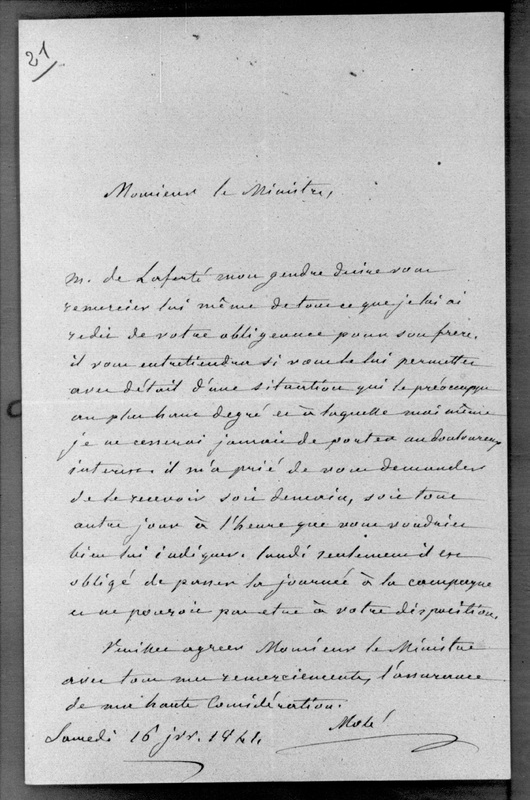 21
Monsieur le Ministre,
M. de Laferté mon gendre desire vous
remercier lui même de tout ce que je lui ai
redit de votre obligeance pour son frere.
il vous entretiendra si vous le lui permettez
avec détail d'une situation qui le préoccupe
au plus haut degré et à laquelle moi même
je ne cesserai jamais de porter un douloureux
interest. il m'a prié de vous demander
de le recevoir soit demain, soit tout
autre jour à l'heure que vous voudriez
bien lui indiquer. lundi seulement il est
obligé de passer la journée à la campagne
et ne pourroit pas etre à votre disposition.
Veuillez agreer Monsieur le Ministre
avec tous mes remerciements, l'assurance
de ma haute Considération.
Molé
Samedi 16 jvr. 1841.